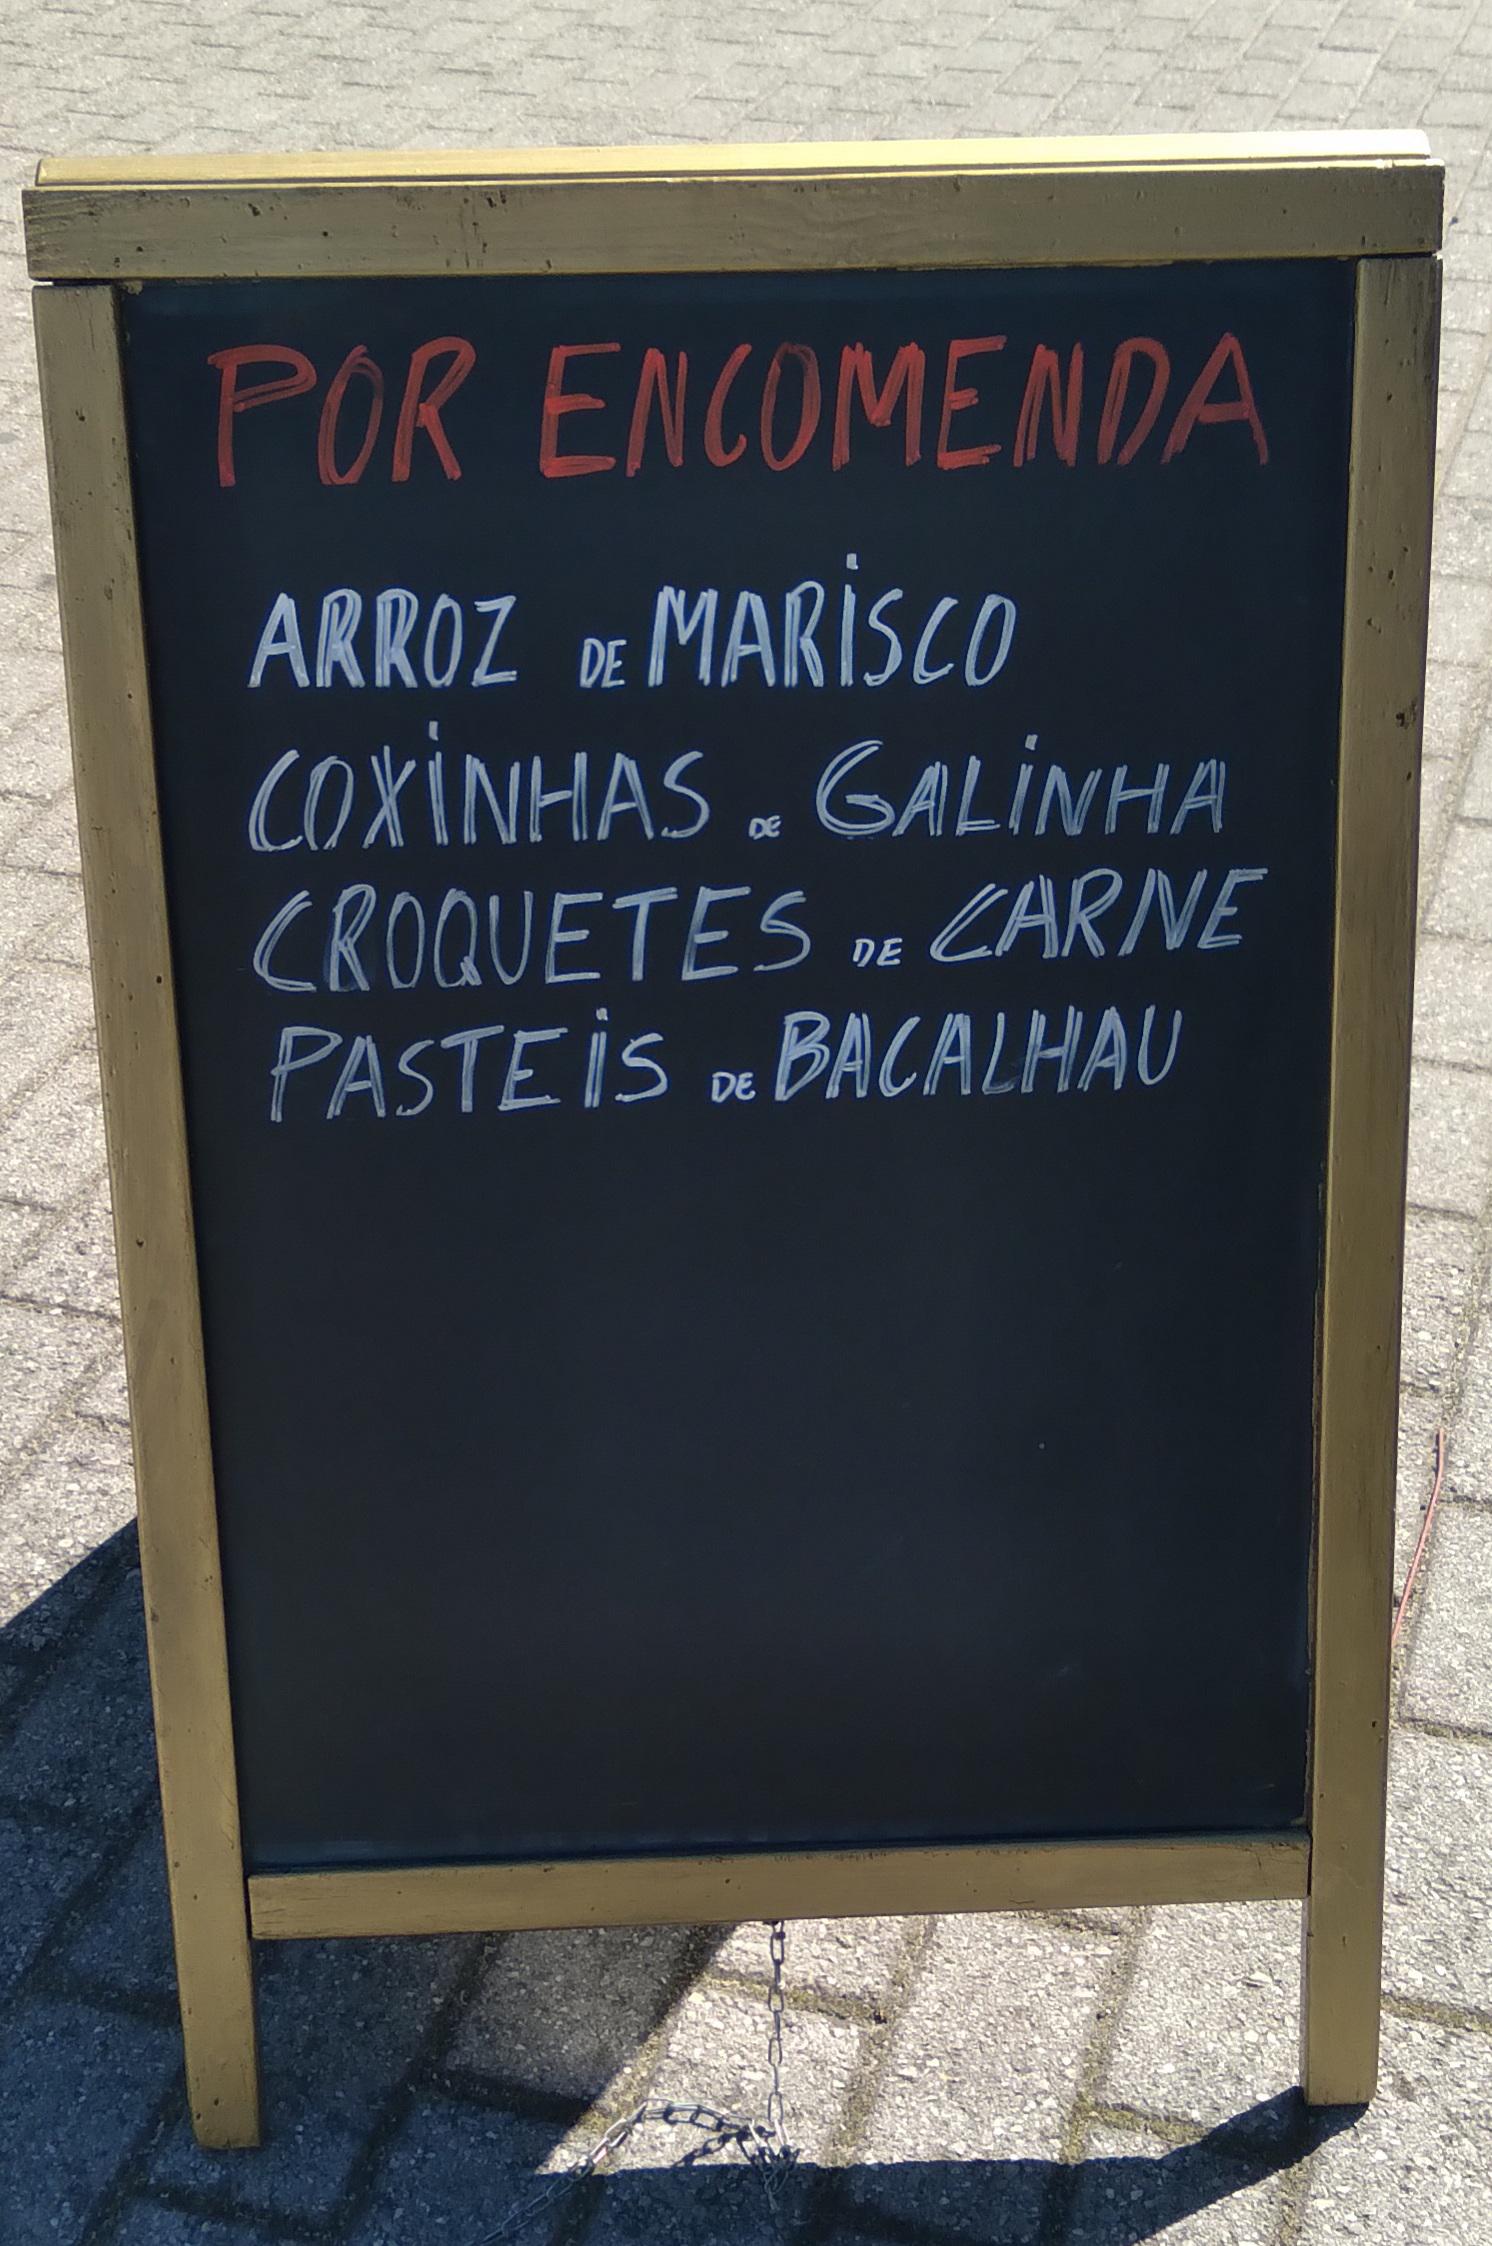 POR ENCOMENDA
ARROZ DE MARISCO
COXINHAS DE GALINHA
CROQUETES DE CARNE
PASTEIS DE BACALHAU